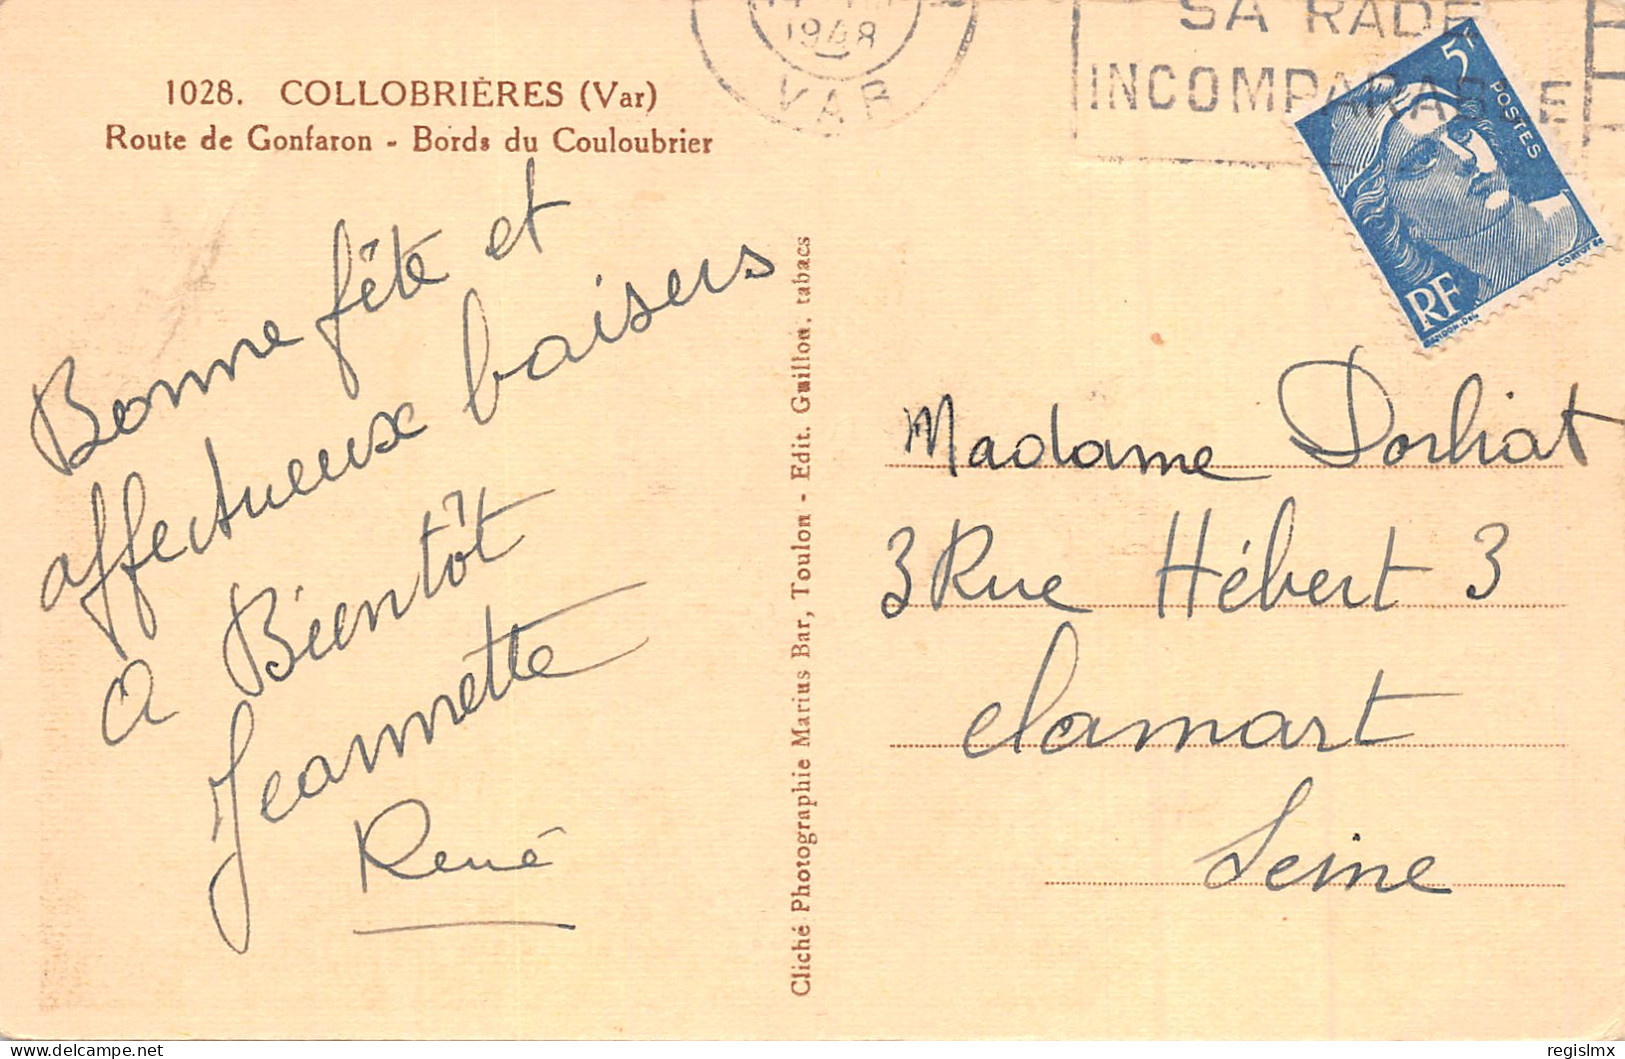 1028. COLLOBRIÈRES (Var)
Route de Gonfaron - Bords du Couloubrier
Bonne fête et
affectueux baisers
a Bientôt
Jeannette
René
Cliché Photographie Marius Bar, Toulon - Edit. Guillon, tabacs
1948
VAR
SA RADE
INCOMPARABLE
5F
POSTES
RF
GANDON.Del
CORTOT
Madame Dorliat
3 Rue Hébert 3
Clamart
Seine
delcampe.net
regislmx